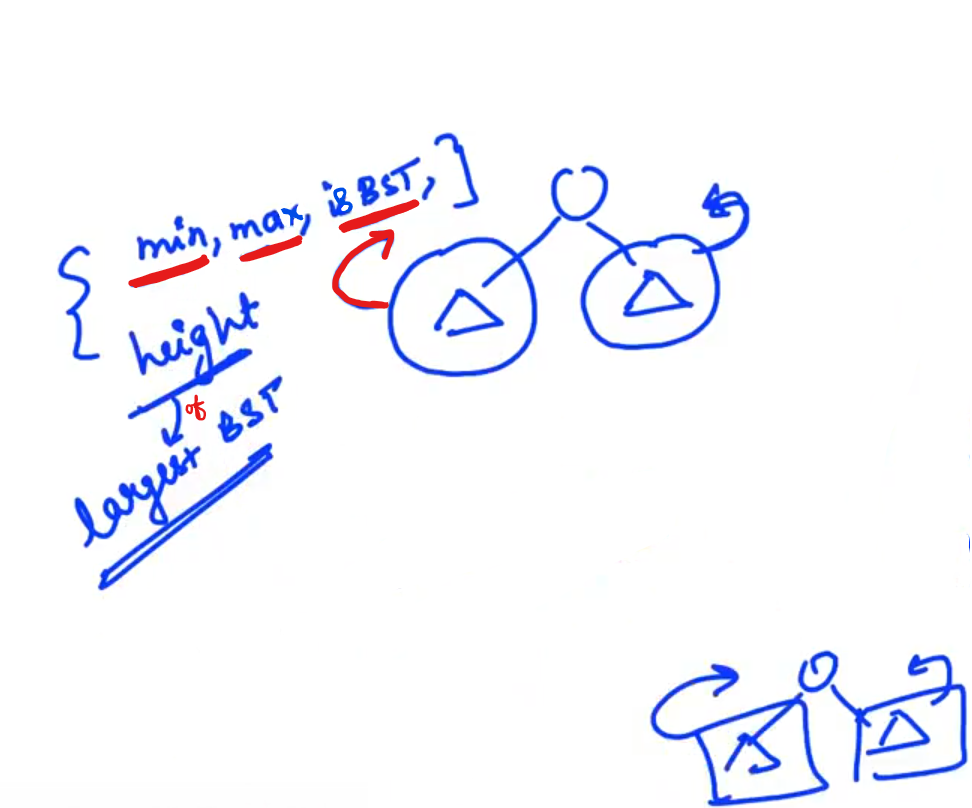 { min, max, isBST, ]
height
of
largest BST